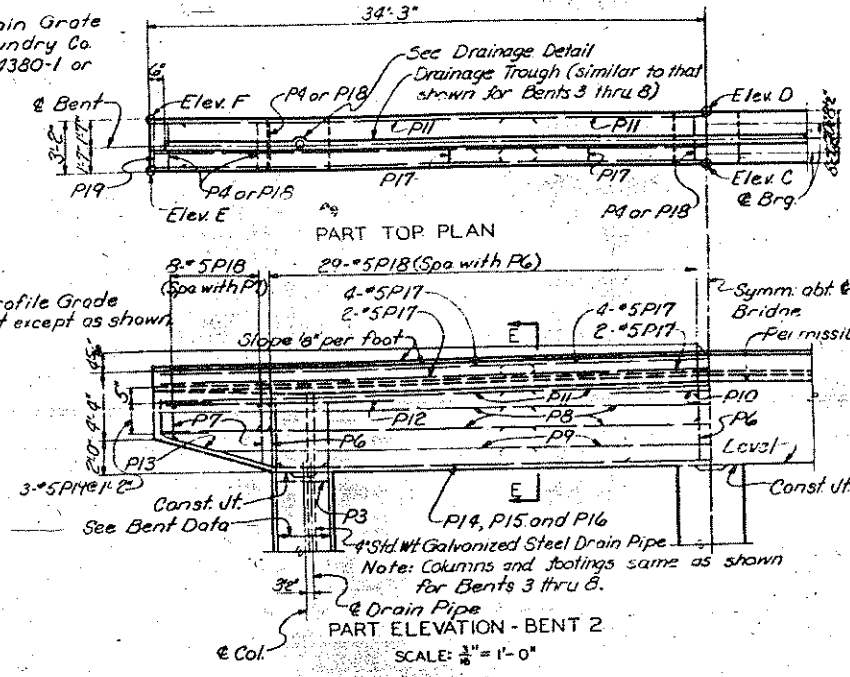 34'-3"
ain Grate
undry Co.
4380-1 or
6"
See Drainage Detail
Drainage Trough (similar to that
shown for Bents 3 thru 8)
℄ Bent
Elev. F
P4 or P18
P11
P11
Elev. D
3'-2"
1'-7"
1'-7"
P19
P4 or P18
P17
P17
Elev. C
℄ Brg.
Elev. E
P4 or P18
PART TOP PLAN
8-#5P18
(Spa with P7)
29-#5P18 (Spa with P6)
rofile Grade
t except as shown
4-#5P17
2-#5P17
4-#5P17
2-#5P17
Symm. abt. ℄
Bridge
Permissi
Slope ⅛" per foot
E
4.5"
5"
4'-4"
2'-0"
P11
P10
P12
P8
P7
P6
P9
P6
P13
Level
3-#5P14@1'-2"
Const. Jt.
E
Const. Jt.
See Bent Data
P3
P14, P15 and P16
4" Std. Wt. Galvanized Steel Drain Pipe
Note: Columns and footings same as shown
for Bents 3 thru 8.
3½"
℄ Drain Pipe
℄ Col.
PART ELEVATION - BENT 2
SCALE: 3/16" = 1'-0"